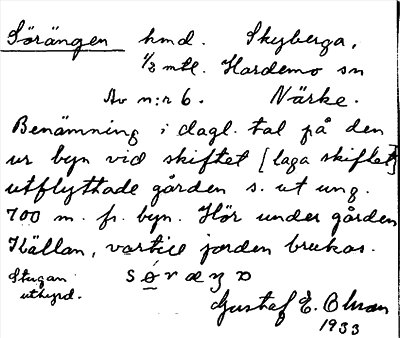 Sörängen hmd. Skyberga,
1/3 mtl. Hardemo sn
Av n:r 6. Närke.
Benämning i dagl. tal på den
ur byn vid skiftet [laga skiftet]
utflyttade gården s. ut ung.
700 m. fr. byn. Hör under gården
Källan, vartill jorden brukas.
Stugan
uthyrd.
Gustaf E. Olsson
1933